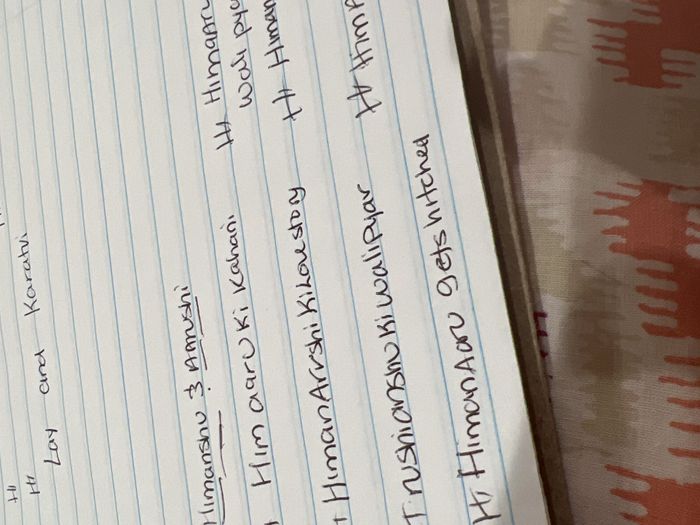 H
H
Lay and Karatvi
Himanshu & Aarushi
Himaaru Ki Kahani
HimanArushiKiLoveStory
TrushianshuKiWaliPyar
H HimanAaru gets hitched
H HimaAru
Wali Pya
H Himan
H Him